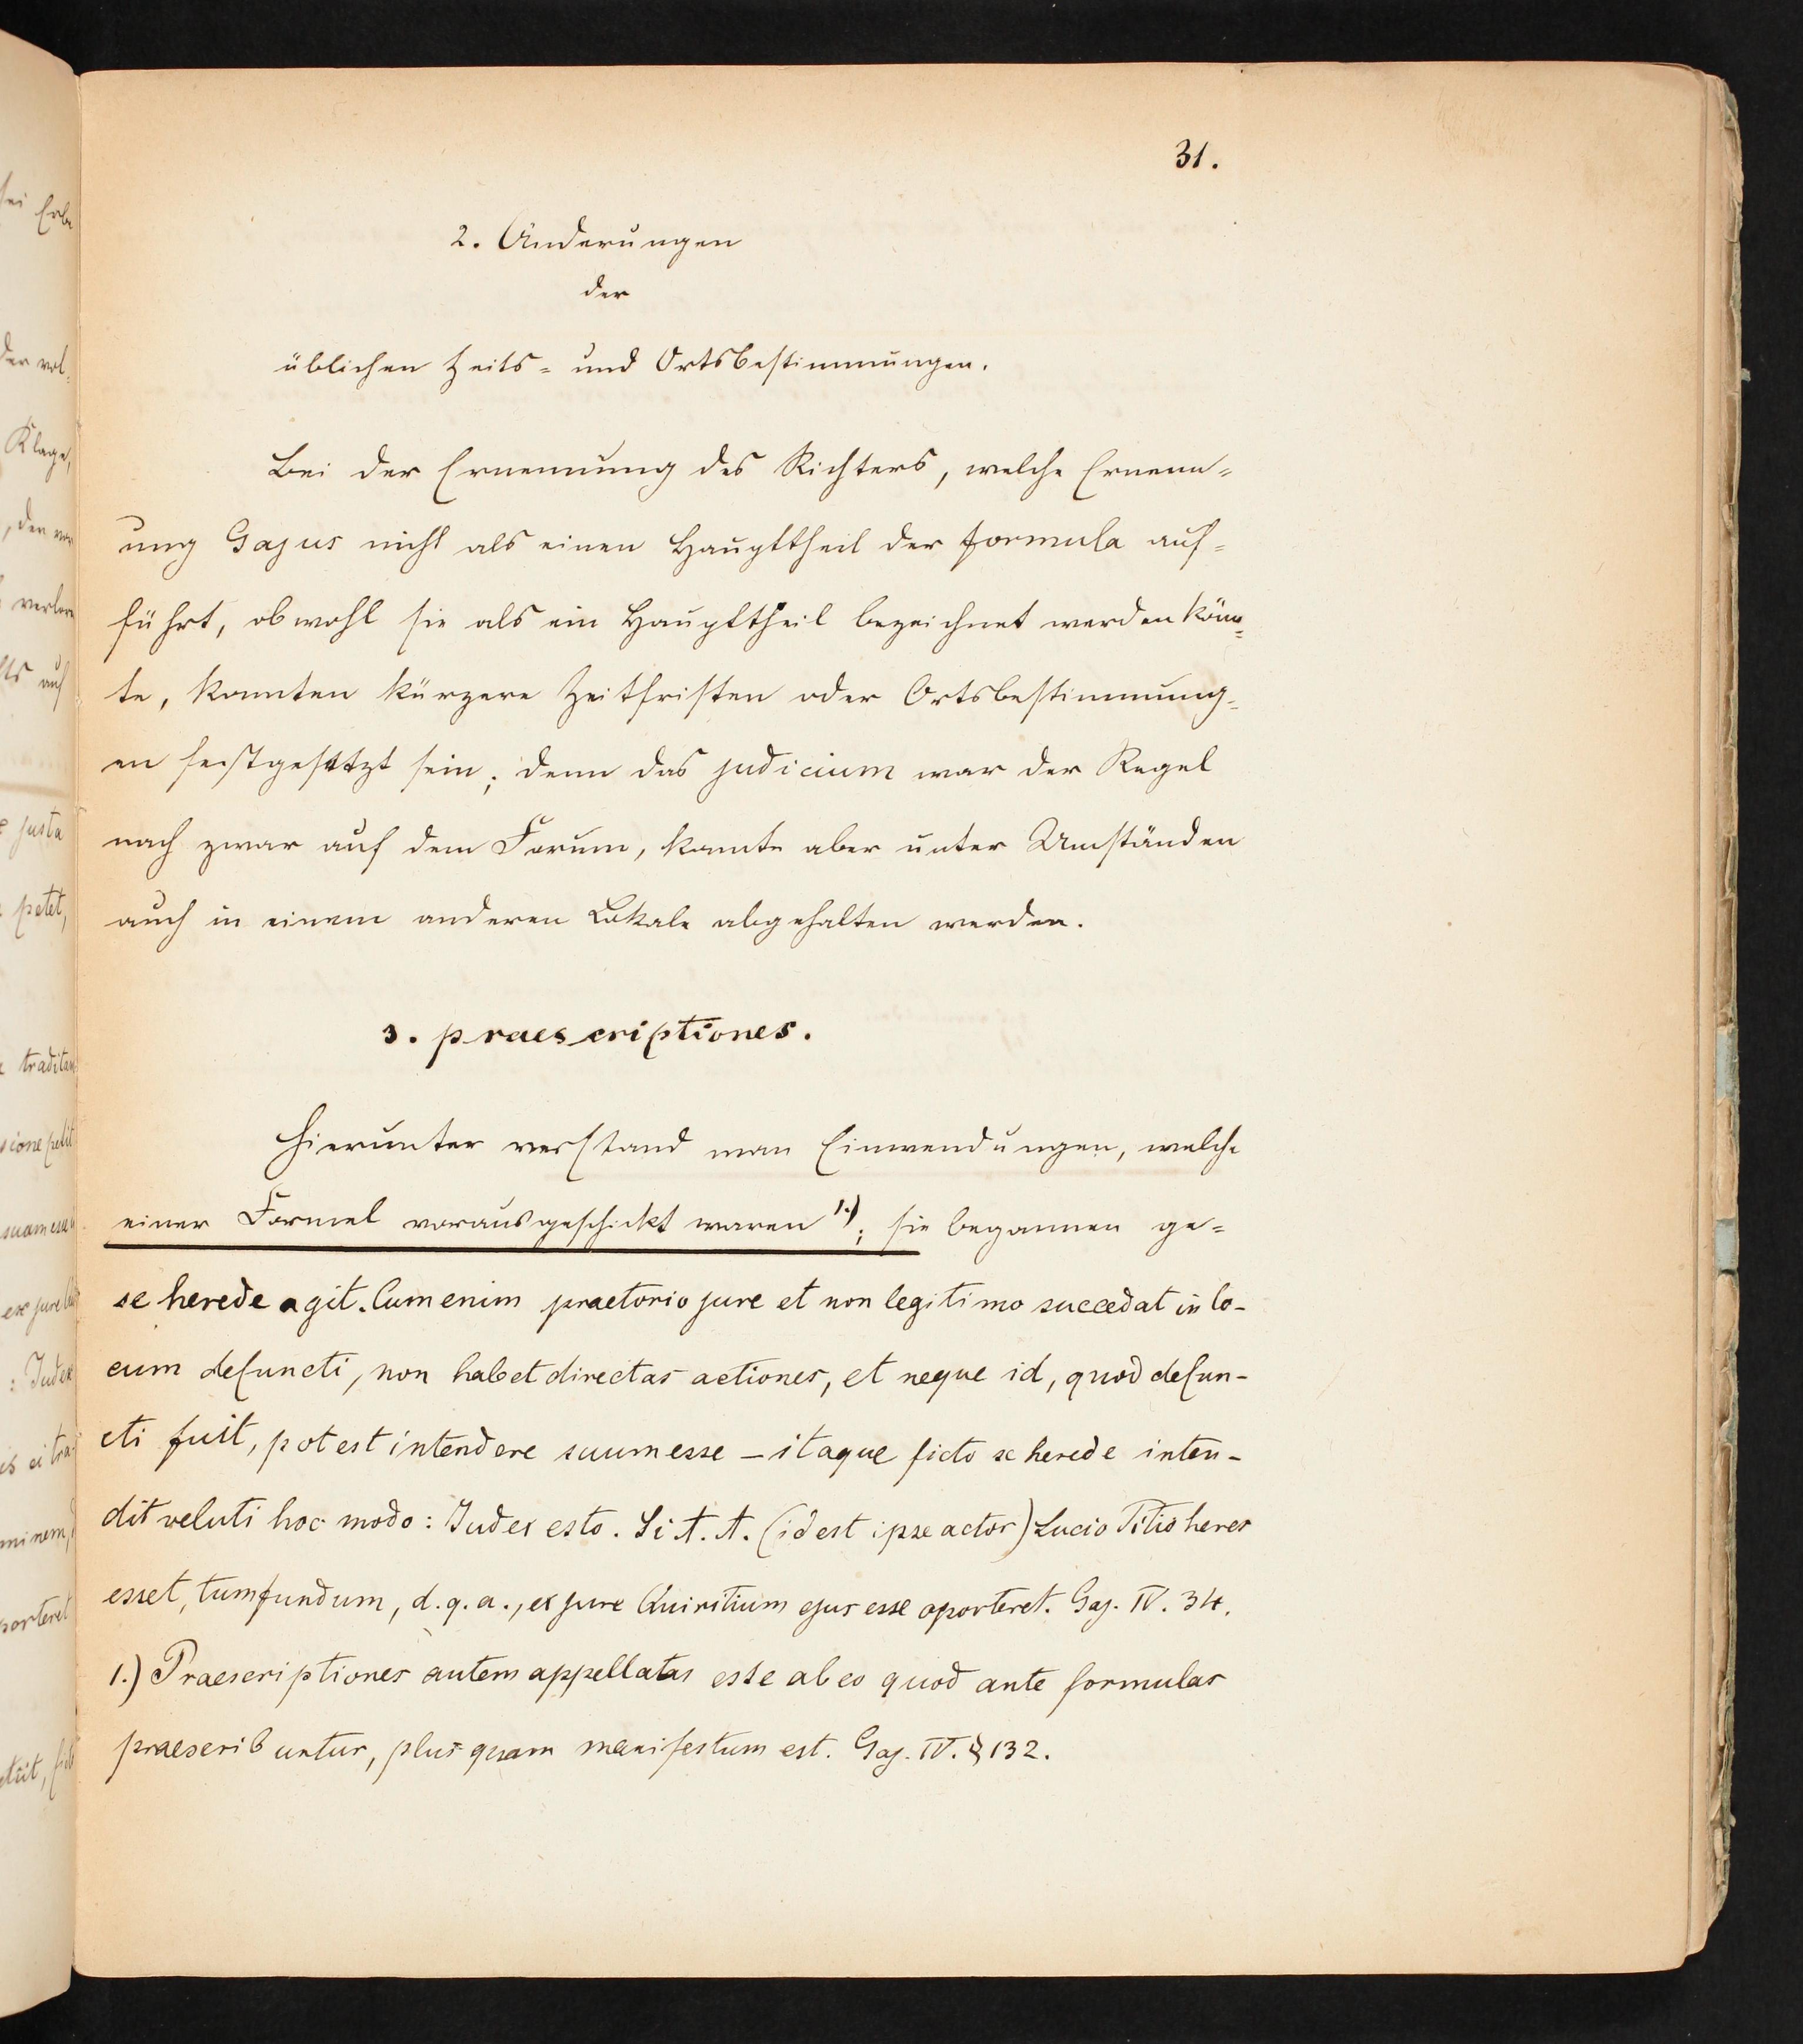 31.
2. Änderungen
der
üblichen Zeits- und Ortsbestimmungen.
Bei der Ernennung des Richters, welche Ernenn-
ung Gajus nicht als einen Haupttheil der formula auf-
führt, obwohl sie als ein Haupttheil bezeichnet werden könn-
te, konnten kürzere Zeitfristen oder Ortsbestimmung-
en festgesetzt sein; denn das judicium war der Regel
nach zwar auf dem Forum, konnte aber unter Umständen
auch in einem anderen Lokale abgehalten werden.
3. praescriptiones.
Hierunter verstand man Einwendungen, welche
einer Formel vorausgeschickt waren 1.); sie begannen ge-
se herede agit. Cum enim praetorio jure et non legitimo succedat in lo-
cum defuncti, non habet directas actiones, et neque id, quod defun-
cti fuit, potest intendere suum esse – itaque ficto se herede inten-
dit veluti hoc modo: Judex esto. Si A. A. (id est ipse actor) Lucio Titio heres
esset, tum fundum, d. q. a., ex jure Quiritium ejus esse oporteret. Gaj. IV. 34.
1.) Praescriptiones autem appellatas esse ab eo quod ante formulas
praescribuntur, plus quam manifestum est. Gaj. IV. § 132.
sei Erbe
Klage,
justa
petet,
: Judex